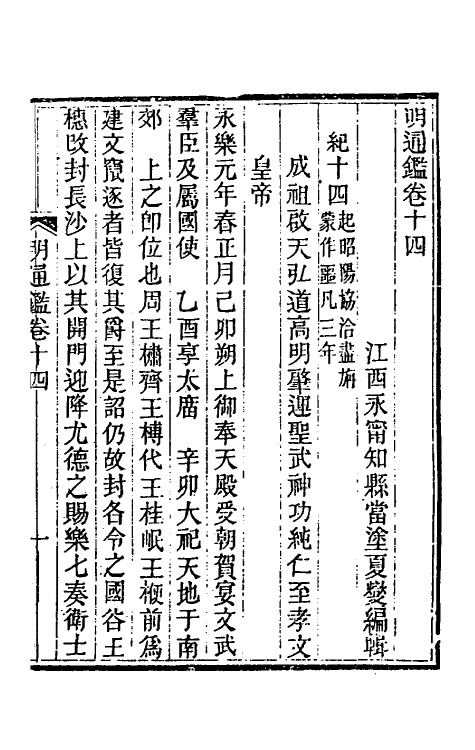 明通鑑卷十四
江西永甯知縣當塗夏燮編輯
紀十四起昭陽協洽盡旃
蒙作噩凡三年
成祖啟天弘道高明肇運聖武神功純仁至孝文
皇帝
永樂元年春正月己卯朔上御奉天殿受朝賀宴文武
羣臣及屬國使 乙酉享太廟 辛卯大祀天地于南
郊 上之卽位也周王橚齊王榑代王桂岷王楩前爲
建文竄逐者皆復其爵至是詔仍故封各令之國谷王
橞改封長沙上以其開門迎降尤德之賜樂七奏衛士
明通鑑卷十四
一